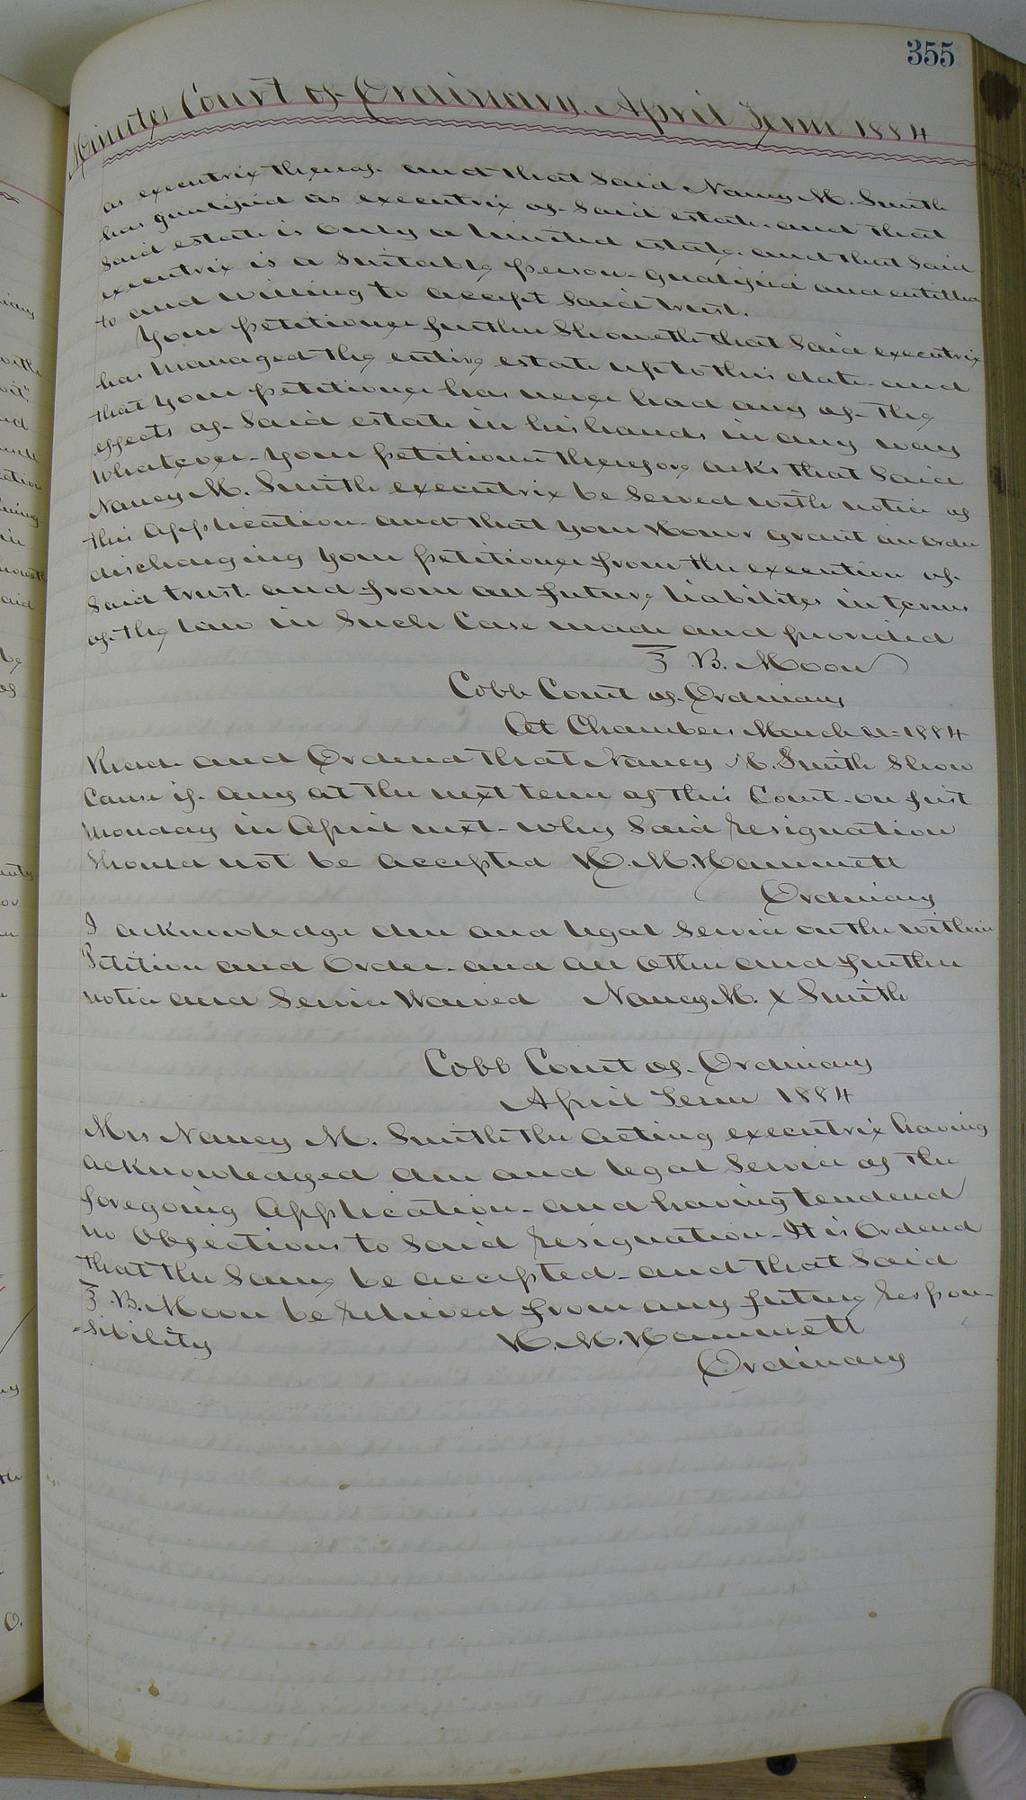 355
Minutes Court of Ordinary. April Term 1884
as executrix thereof. and that said Nancy M. Smith
has qualified as executrix of said estate. and that
said estate is only a limited estate. and that said
executrix is a suitable person. qualified and entitled
to and willing to accept said trust.
Your petitioner further showeth that said executrix
has managed the entire estate up to this date. and
that your petitioner has never had any of the
effects of said estate in his hands in any way
whatever. your petitioner therefore asks that said
Nancy M. Smith executrix be served with notice of
this application. and that your Honor grant an order
discharging your petitioner from the execution of
said trust. and from all future liabilites in terms
of the law in such case made and provided
B. Moon
Cobb Court of Ordinary
At Chambers March 1884
Read and Ordered that Nancy M. Smith show
cause if any at the next term of this Court. on first
Monday in April next. why said resignation
should not be accepted H. M. Hammett
Ordinary
I acknowledge due and legal service on the within
Petition and Order. and all other and further
notice and service waived Nancy M. x Smith
Cobb Court of Ordinary
April Term 1884
Mrs Nancy M. Smith the acting executrix having
acknowledged due and legal service of the
foregoing application. and having tendered
no objections to said resignation. It is ordered
that the same be accepted. and that said
B. Moon be relieved from any future respon-
-sibility H. M. Hammett
Ordinary